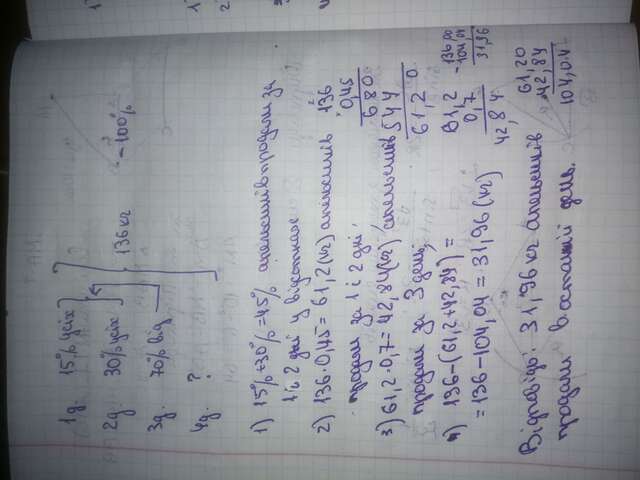 1д. 15% усіх
2д. 30% усіх
3д. 70% від
4д. ?
136 кг
– 100%
1) 15%+30%=45% апельсинів продали за
1 і 2 дні у відсотках
2) 136·0,45=61,2(кг) апельсинів
продали за 1 і 2 дні.
3) 61,2·0,7=42,84(кг) апельсинів
продали за 3 день.
4) 136–(61,2+42,84)=
=136–104,04=31,96(кг)
Відповідь: 31,96 кг апельсинів
продали в останній день.
136
0,45
680
544
61,20
61,2
0,7
42,84
–136,00
104,04
31,96
61,20
42,84
104,04